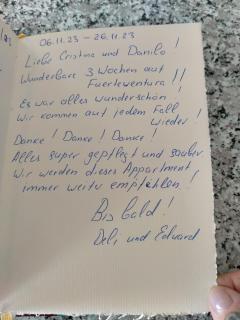 06.11.23 - 26.11.23
Liebe Cristina und Danilo!
Wunderbare 3 Wochen auf
Fuerteventura!!
Es war alles wunderschön!
Wir kommen auf jedem Fall
wieder!
Danke! Danke! Danke!
Alles super gepflegt und sauber.
Wir werden dieses Appartment
immer weiter empfehlen!
Bis bald!
und Eduard